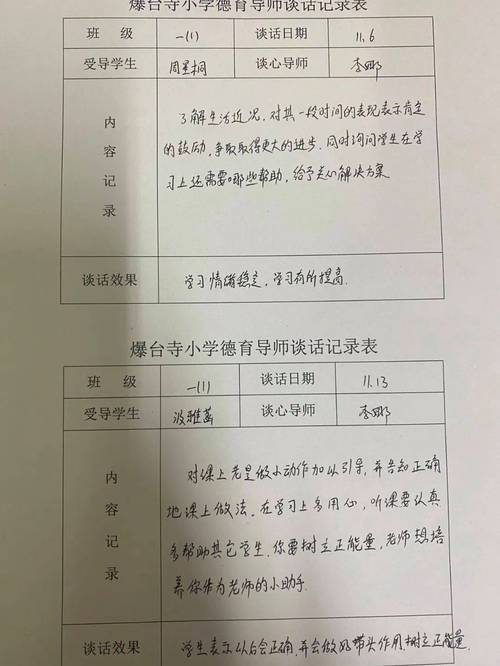 爆台寺小学德育导师谈话记录表
班 级 一(1) 谈话日期 11.6
受导学生 周星桐 谈心导师 李娜
内容记录
了解生活近况,对其一段时间的表现表示肯定
的鼓励,争取取得更大的进步.同时询问学生在学
习上还需要哪些帮助,给予关心解决方案.
谈话效果 学习情绪稳定,学习有所提高.
爆台寺小学德育导师谈话记录表
班 级 一(1) 谈话日期 11.13
受导学生 雅菡 谈心导师 李娜
内容记录
对课上老是做小动作加以引导,并告知正确
地课上做法.在学习上多用心,听课要认真
多帮助其它学生.你要树立正能量,老师想培
养你作为老师的小助手.
谈话效果 学生表示以后会正确,并会做好带头作用,树立正能量.